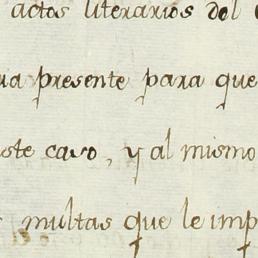 actos literarios del
ua presente para que
ste caso, y al mismo
multas que le imp